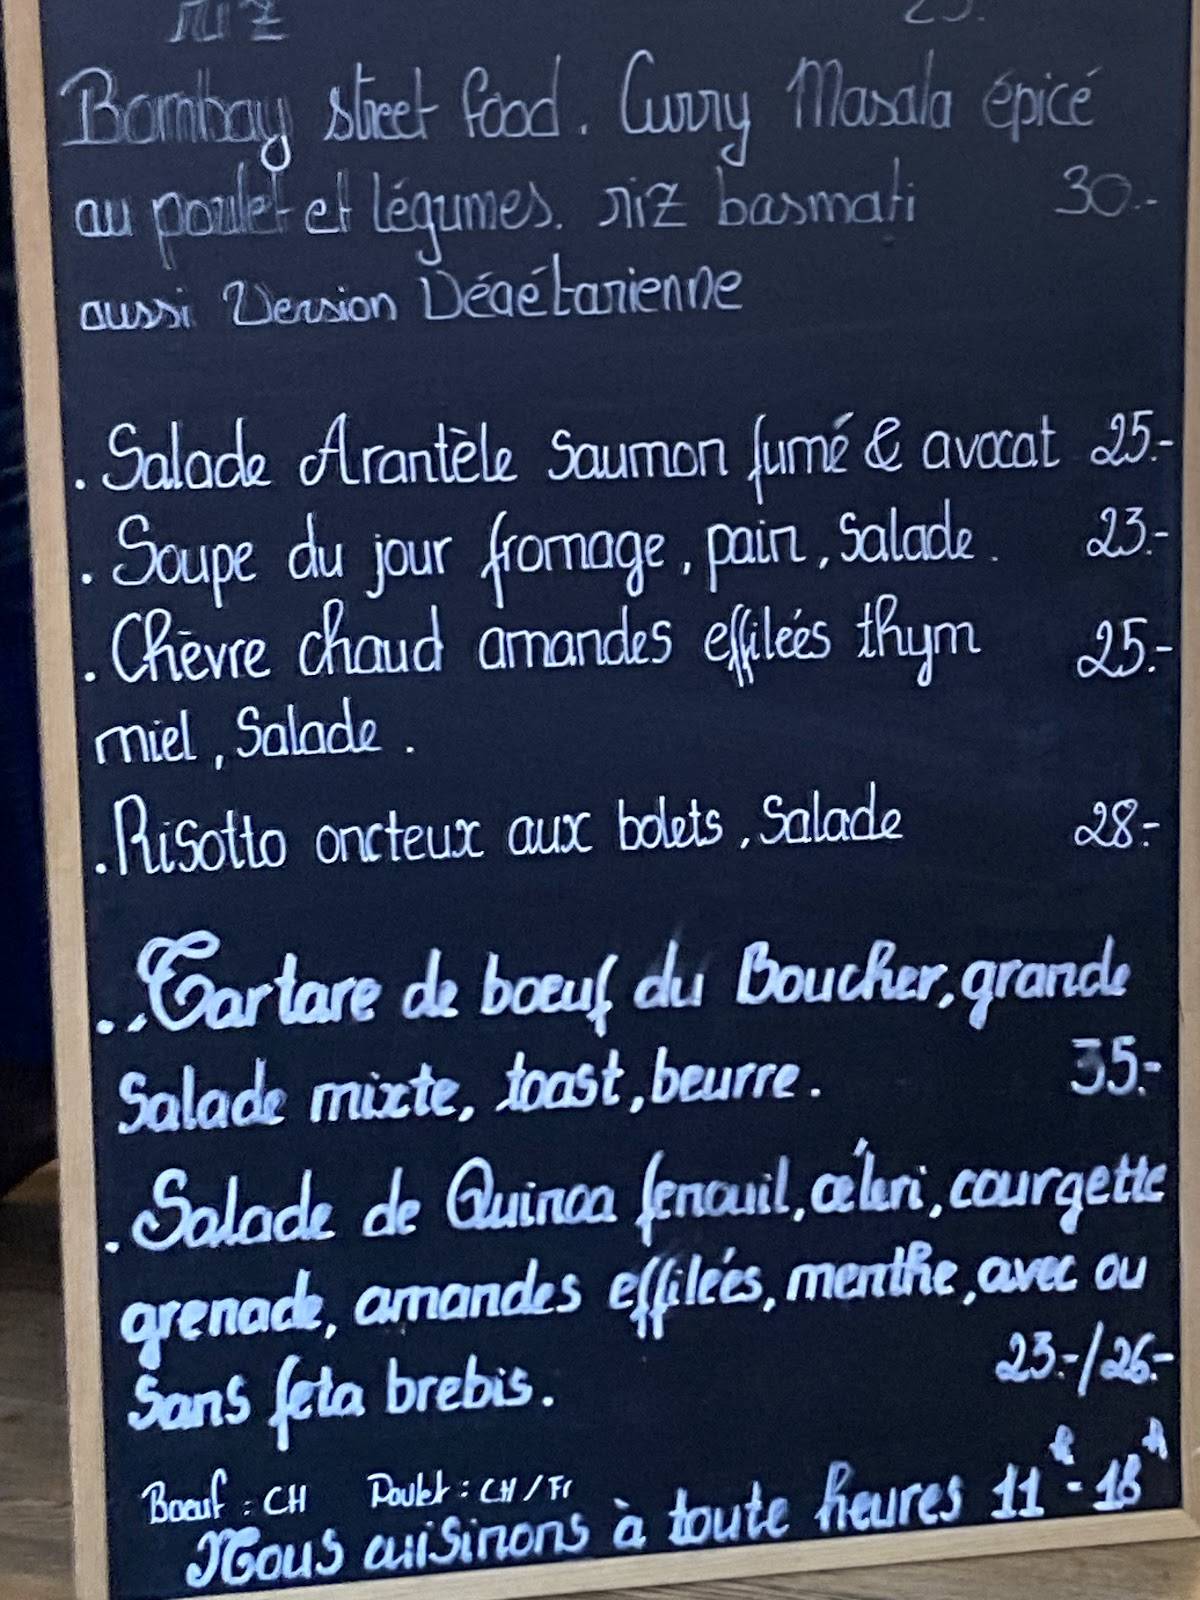 riz 25.
Bombay street food. Curry Masala épicé
au poulet et légumes. riz basmati 30.-
aussi Version Végétarienne
. Salade Arantèle Saumon fumé & avocat 25.-
. Soupe du jour fromage, pain, Salade. 23.-
. Chèvre chaud amandes effilées thym 25.-
miel, Salade.
. Risotto oncteux aux bolets, Salade 28.-
. Tartare de bœuf du Boucher, grande
Salade mixte, toast, beurre. 35.-
. Salade de Quinoa fenouil, céleri, courgette
grenade, amandes effilées, menthe, avec ou
Sans feta brebis. 23.-/26.-
Boeuf : CH Poulet : CH/Fr
Nous cuisinons à toute heures 11h - 18h